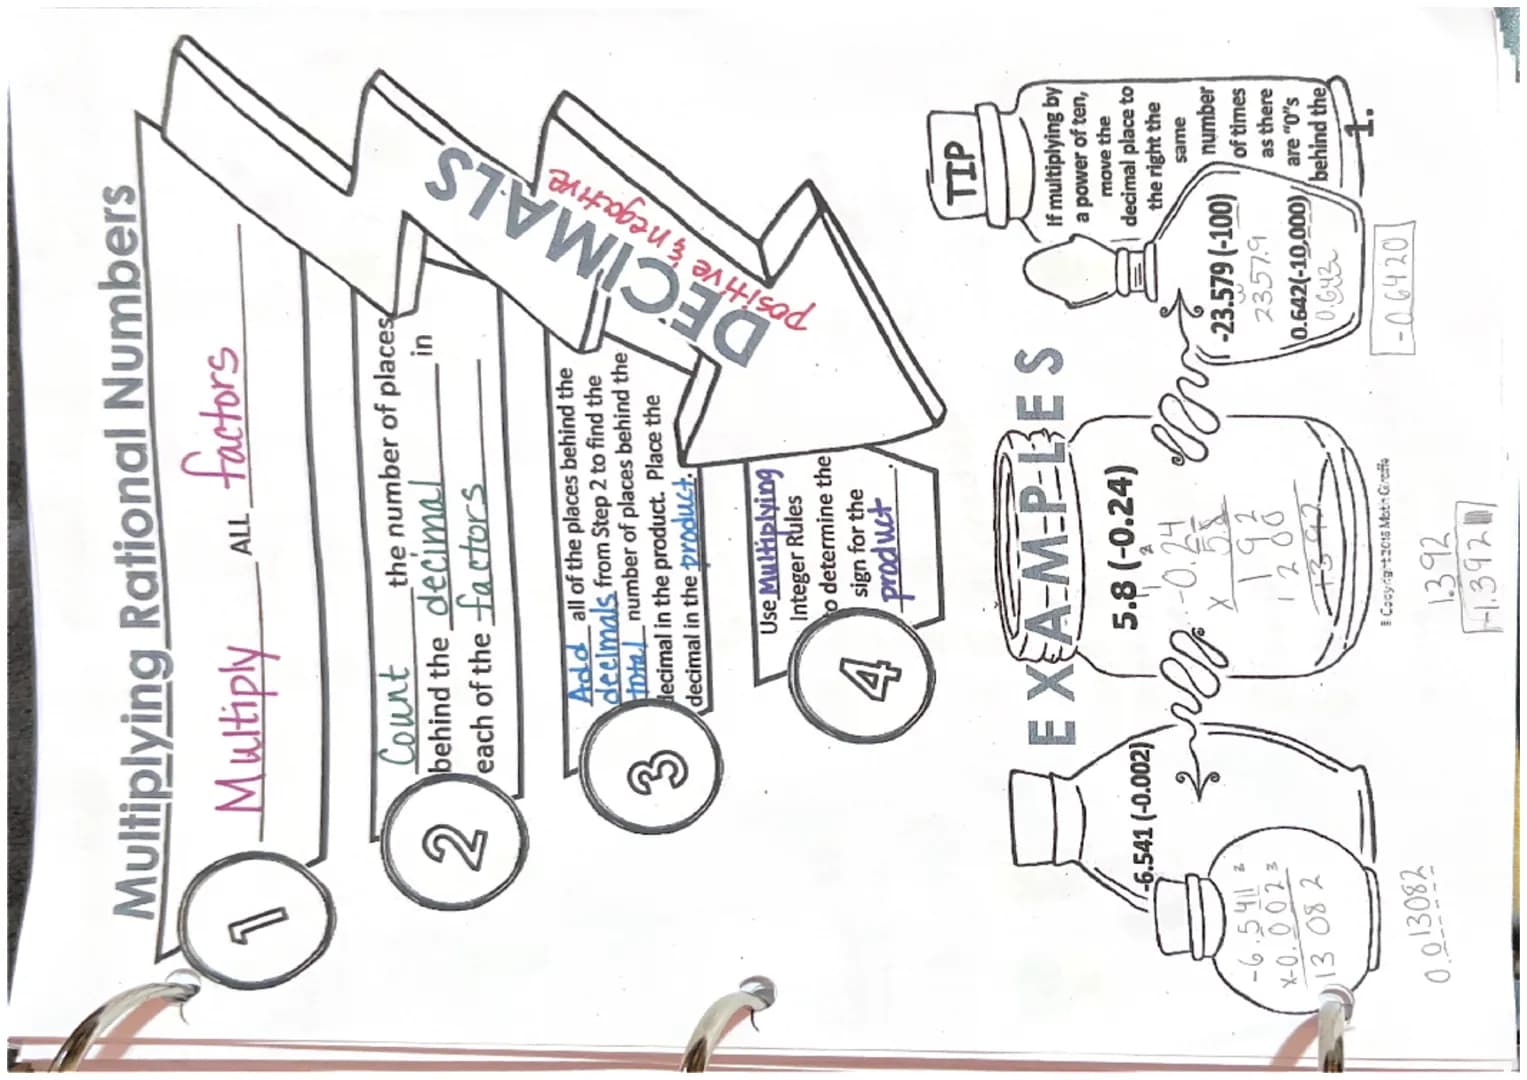 Multiplying Rational Numbers
1
Multiply ALL factors
2
Count the number of places
behind the decimal in
each of the factors
3
Add all of the places behind the
decimals from Step 2 to find the
total number of places behind the
decimal in the product. Place the
decimal in the product.
4
Use Multiplying
Integer Rules
to determine the
sign for the
product.
DECIMALS
positive & negative
EXAMPLES
-6.541 (-0.002)
-6.541
x-0.002
13 082
0.013082
5.8 (-0.24)
-0.24
x 5.8
192
1200
1392
1.392
-1.392
TIP
If multiplying by
a power of ten,
move the
decimal place to
the right the
same
number
of times
as there
are "0"s
behind the
1.
-23.579 (-100)
2357.9
0.642(-10,000)
0.642
-0.6420
© Copyright 2016 Math Giraffe